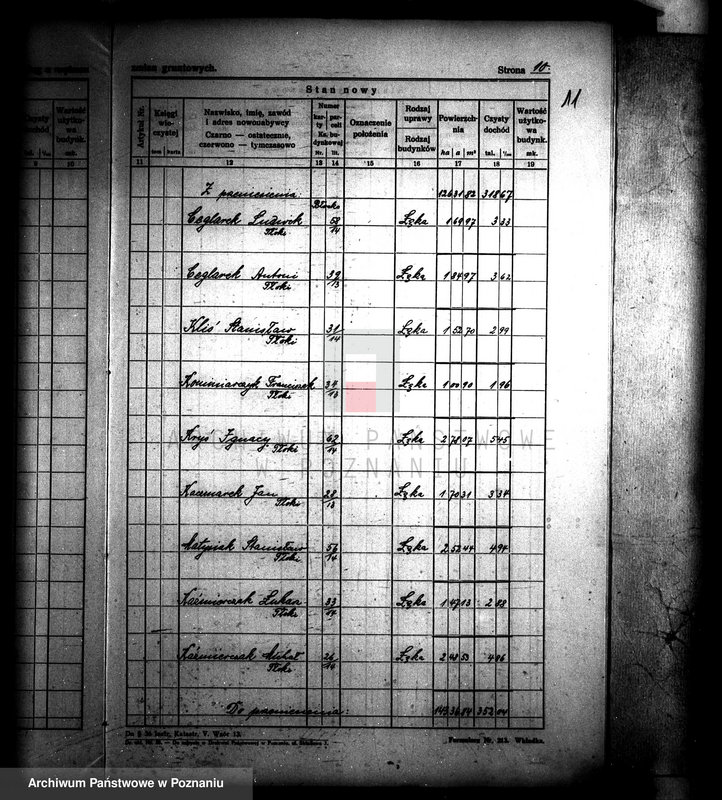 zmian gruntowych. Strona 10.
11
Stan nowy
Artykuł Nr. Księgi wieczystej Nazwisko, imię, zawód i adres nowonabywcy Numer Oznaczenie położenia Rodzaj uprawy Powierzchnia Czysty dochód Wartość użytkowa budynk.
tom karta Czarno — ostatecznie, czerwono — tymczasowo karty parceli Ks. budynkowej Nr. lit. Rodzaj budynków ha a m² tal. 1/100 mk.
11 12 13 14 15 16 17 18 19
Z przeniesienia 126 31 82 318 67
Ceglarek Ludwik 58/14 Łąka 1 69 97 3 33
Tłoki
Ceglarek Antoni 32/13 Łąka 1 84 97 3 62
Tłoki
Kliś Stanisław 31/14 Łąka 1 52 70 2 99
Tłoki
Kominiarczyk Franciszek 34/13 Łąka 1 00 90 1 96
Tłoki
Kryś Ignacy 62/14 Łąka 2 78 07 5 45
Tłoki
Kaczmarek Jan 28/13 Łąka 1 70 31 3 34
Tłoki
Matysiak Stanisław 56/14 Łąka 2 52 44 4 94
Tłoki
Kaźmierczak Łukasz 33/14 Łąka 1 47 13 2 88
Tłoki
Kaźmierczak Michał 26/14 Łąka 2 48 53 4 86
Tłoki
Do przeniesienia: 143 36 84 352 04
Do § 36 Instr. Katastr. V. Wzór 13.
Formularz Nr. 213. Wkładka.
ARCHIWUM PAŃSTWOWE
W POZNANIU
Archiwum Państwowe w Poznaniu